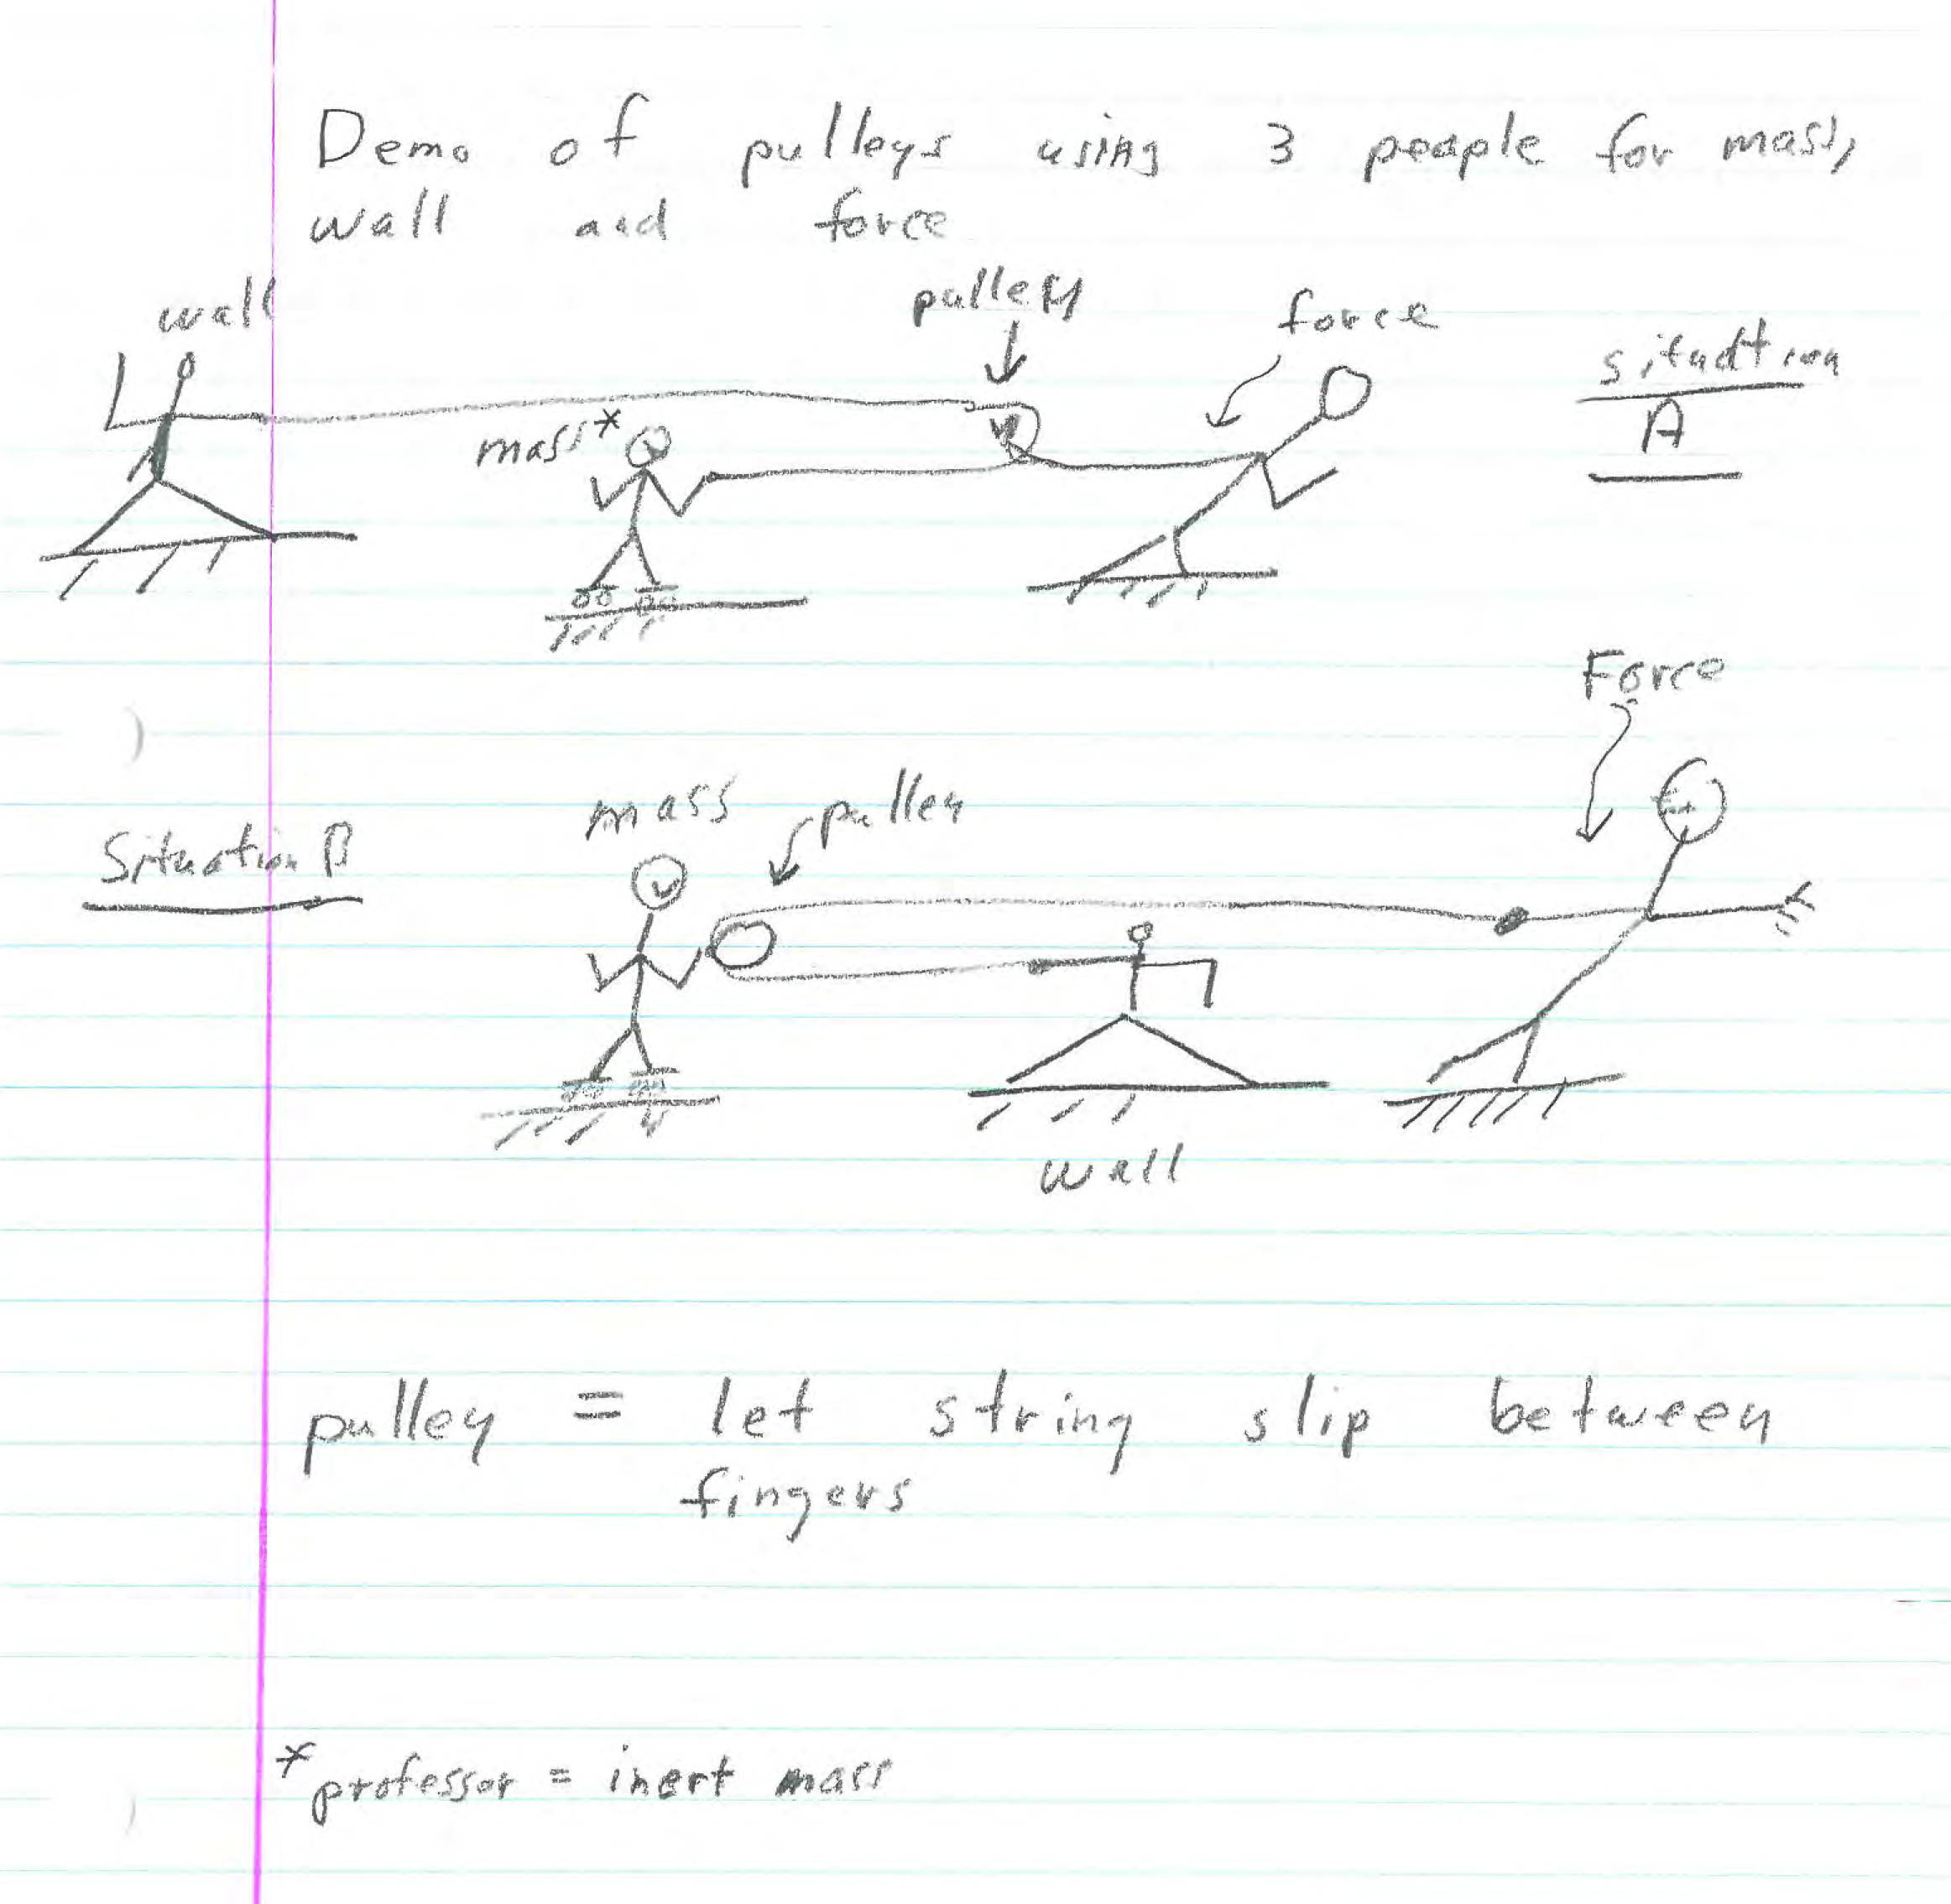 Demo of pulleys using 3 people for mass,
wall and force
wall
pulley
force
situation
A
mass*
Force
Situation B
mass
pulley
wall
pulley = let string slip between
fingers
* professor = inert mass